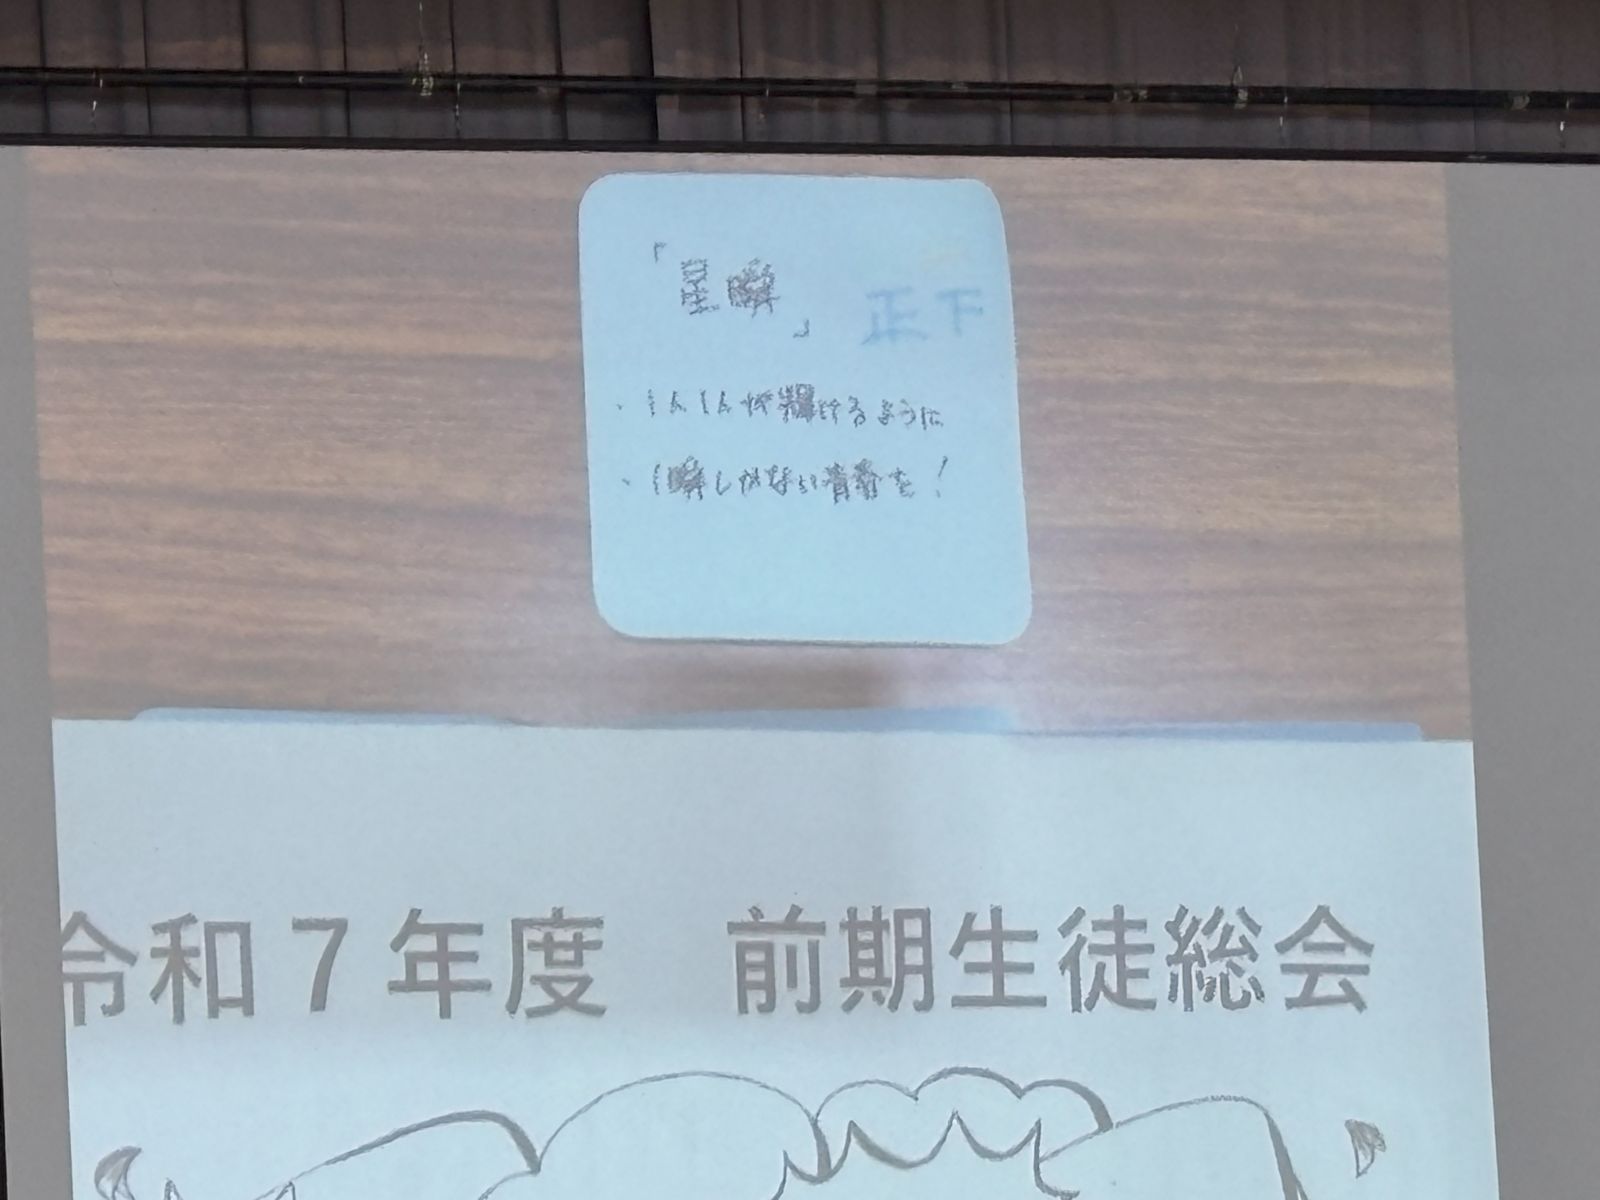 『星瞬』
正下
・1人1人が輝けるように
・1瞬しかない青春を!
令和7年度 前期生徒総会